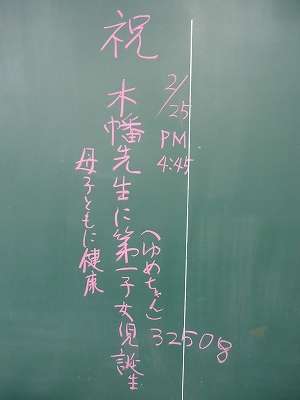 祝
2/25
PM
4:45
木幡先生に第一子女児誕生
(ゆめちゃん)
3250g
母子ともに健康